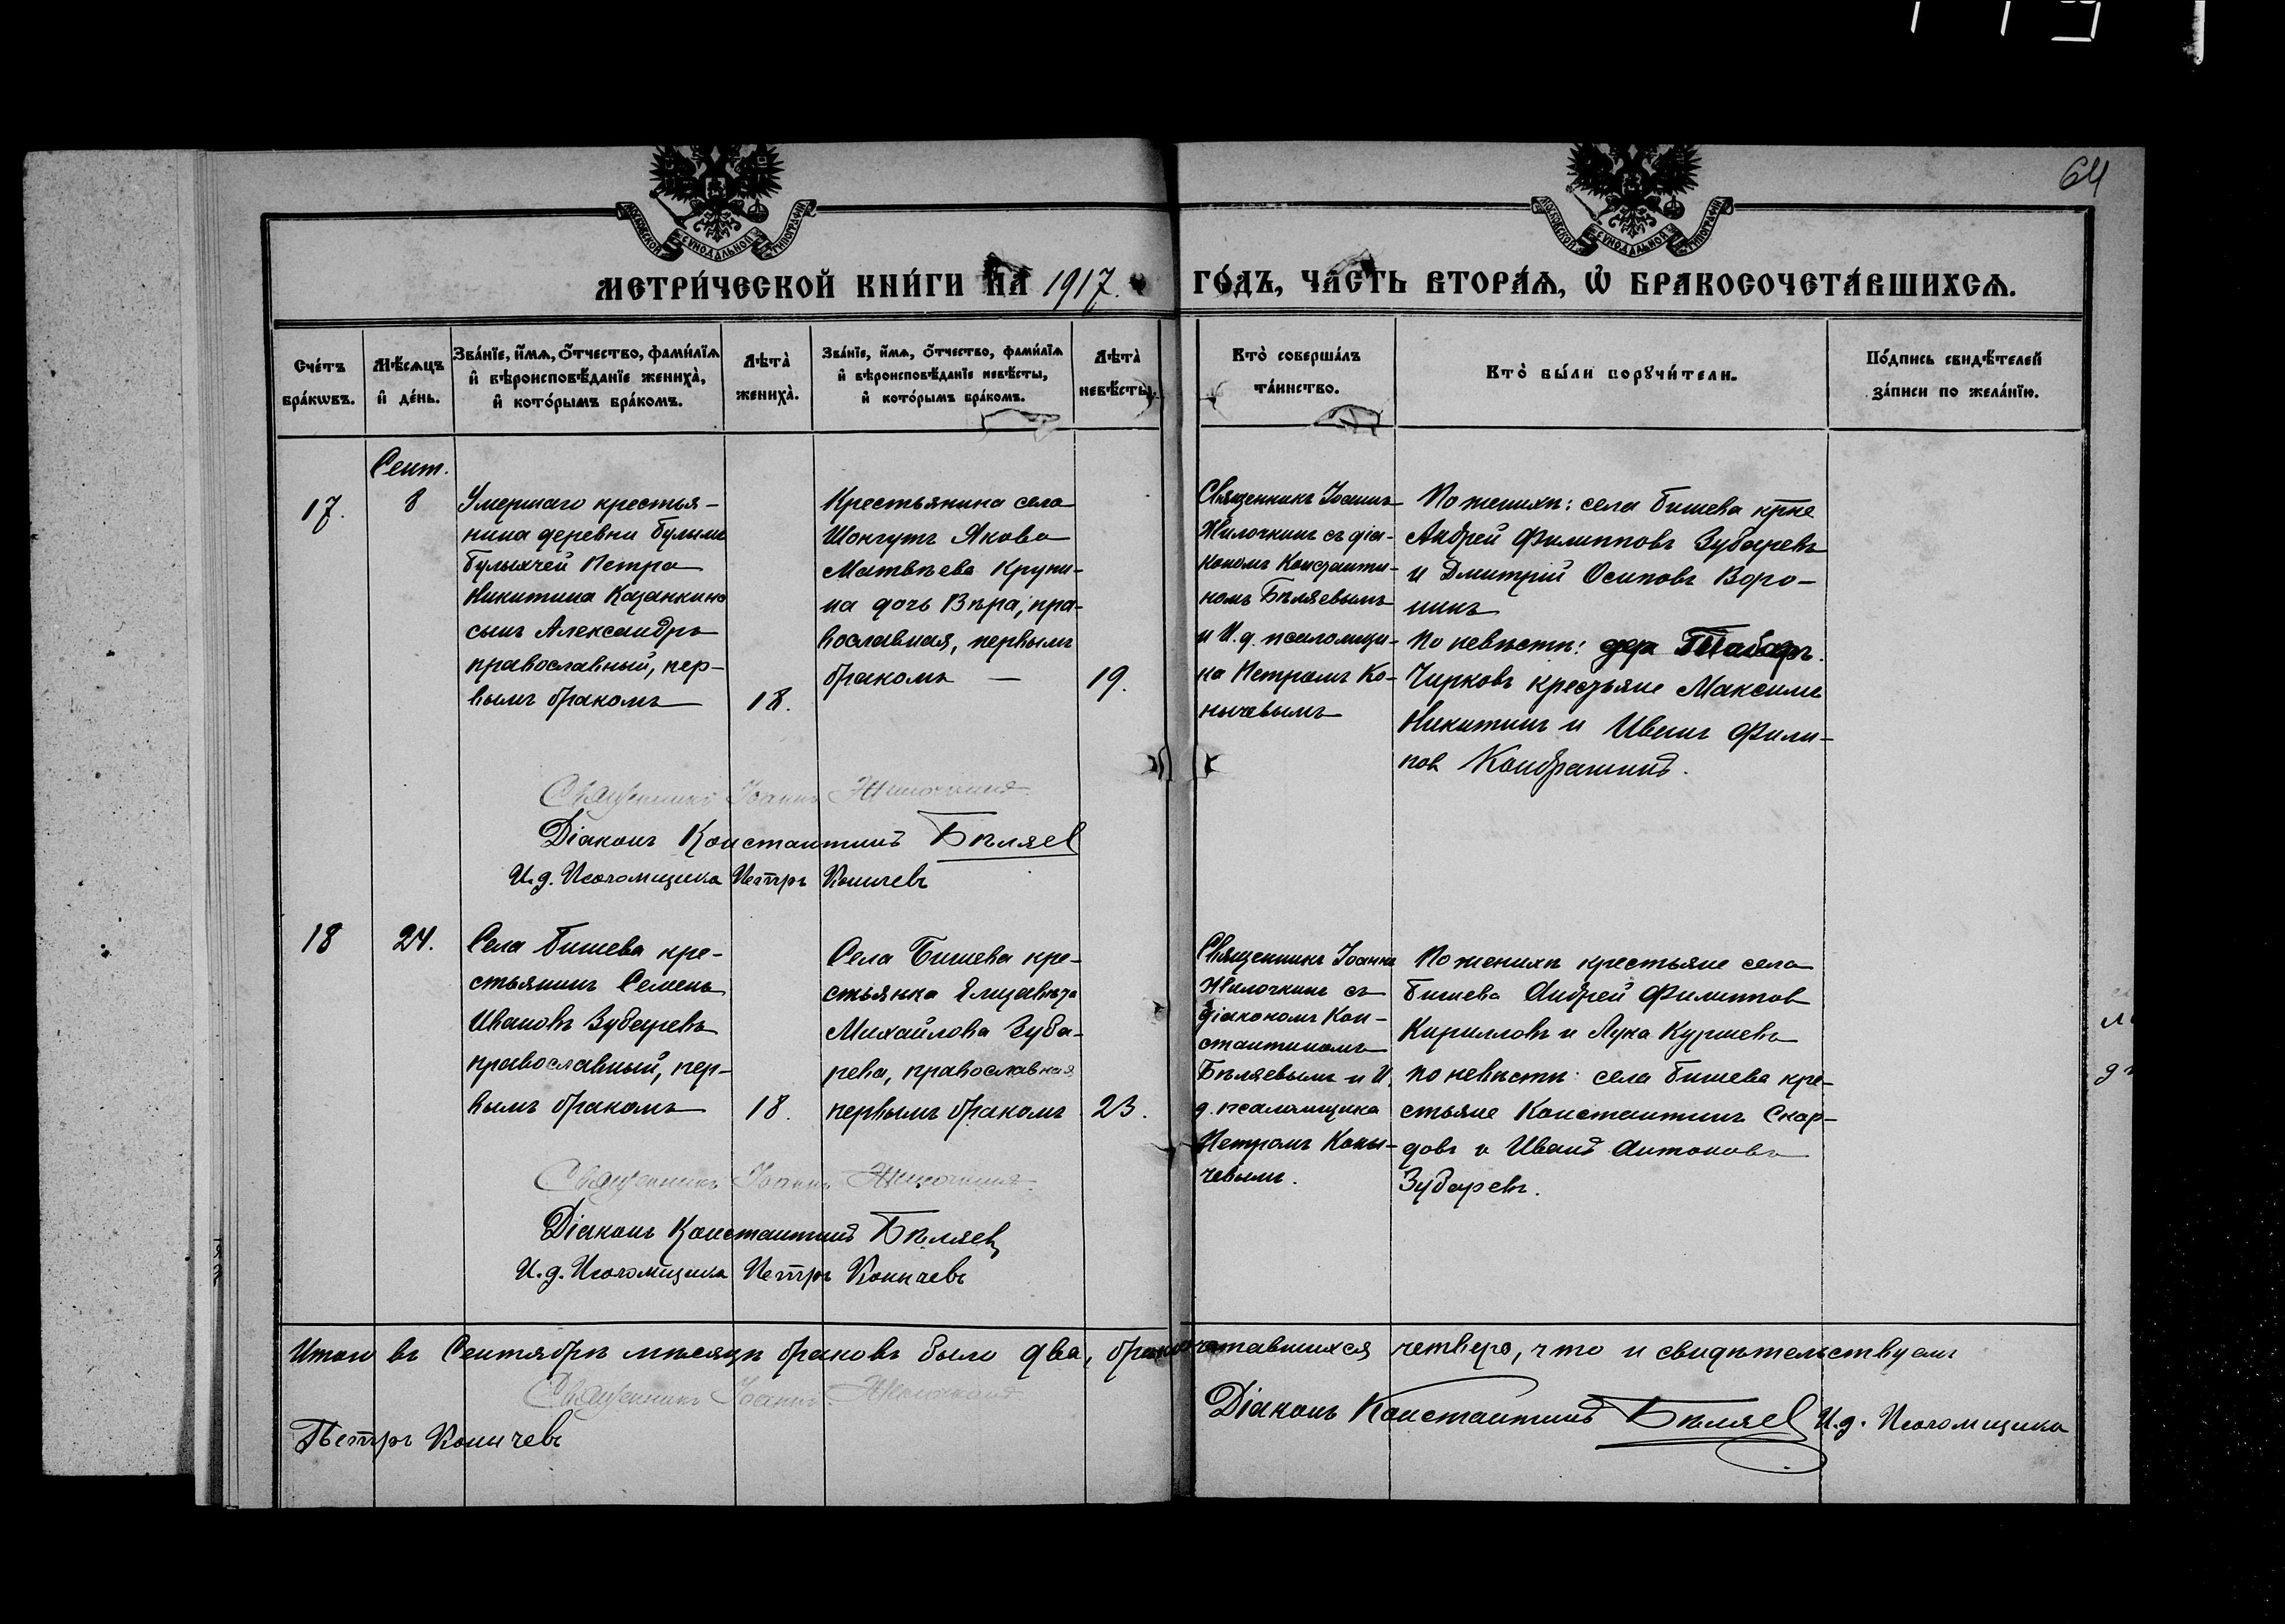 64
МОСКОВСКОЙ СѴНОДАЛЬНОЙ ТИПОГРАФІИ
МОСКОВСКОЙ СѴНОДАЛЬНОЙ ТИПОГРАФІИ
МЕТРИ́ЧЕСКОЙ КНИ́ГИ НА 1917. ГО́ДЪ, ЧА́СТЬ ВТОРА́Ѧ, Ѿ БРАКОСОЧЕТА́ВШИХСѦ.
Сче́тъ
бра́кѡвъ.
Мѣ́сѧцъ
и҆ де́нь.
Зва́нїе, и҆́мѧ, ѻ҆́тчество, фами́лїѧ
и҆ вѣроисповѣ́данїе жениха̀,
и҆ кото́рымъ бра́комъ.
Лѣта̀
жениха̀.
Зва́нїе, и҆́мѧ, ѻ҆́тчество, фами́лїѧ
и҆ вѣроисповѣ́данїе невѣ́сты,
и҆ кото́рымъ бра́комъ.
Лѣта̀
невѣ́сты.
Кто̀ соверша́лъ
та́инство.
Кто̀ бы́ли порꙋчи́тели.
По́дпись свидѣ́телей
за́писи по жела́нїю.
Сент.
17.
8
Умершаго крестья-
нина деревни Булыми
Булыхчей Петра
Никитина Казанкина
сынъ Александръ
православный, пер-
вымъ бракомъ
18.
Крестьянина села
Шонгутъ Якова
Матвѣева Круни-
на дочь Вѣра, пра-
вославная, первымъ
бракомъ —
19.
Священникъ Іоаннъ
Жилочкинъ съ діа-
кономъ Константи-
номъ Бѣляевымъ
и И. д. псаломщи-
ка Петромъ Ко-
нычевымъ
По женихѣ: села Бишева крне
Андрей Филипповъ Зубаревъ
и Дмитрій Осиповъ Воро-
нинъ
по невѣстѣ: дер
Чирковъ крестьяне Максимъ
Никитинъ и Иванъ Фили-
пов Кондрашинъ.
Священникъ Іоаннъ Жилочкинъ
Діаконъ Константинъ Бѣляев
И. д. Псаломщика Петръ Конычевъ
18
24.
Села Бишева кре-
стьянинъ Семенъ
Ивановъ Зубаревъ
православный, пер-
вымъ бракомъ
18.
Села Бишева кре-
стьянка Елизавета
Михайлова Зуба-
рева, православная
первымъ бракомъ
23.
Священникъ Іоаннъ
Жилочкинъ съ
діакономъ Кон-
стантиномъ
Бѣляевымъ и И.
д. псаломщика
Петромъ Коны-
чевымъ.
По женихѣ крестьяне села
Бишева Андрей Филиппов
Кирилловъ и Лука Куршевъ
по невѣстѣ: села Бишева кре-
стьяне Константинъ Скор-
довъ и Иванъ Антоновъ
Зубаревъ.
Священникъ Іоаннъ Жилочкинъ
Діаконъ Константинъ Бѣляев
И. д. Псаломщика Петръ Конычевъ
Итого въ Сентябрѣ мѣсяцѣ браковъ было два, бракосочетавшихся четверо, что и свидѣтельствуемъ
Священникъ Іоаннъ Жилочкинъ
Діаконъ Константинъ Бѣляев И. д. Псаломщика
Петръ Конычевъ